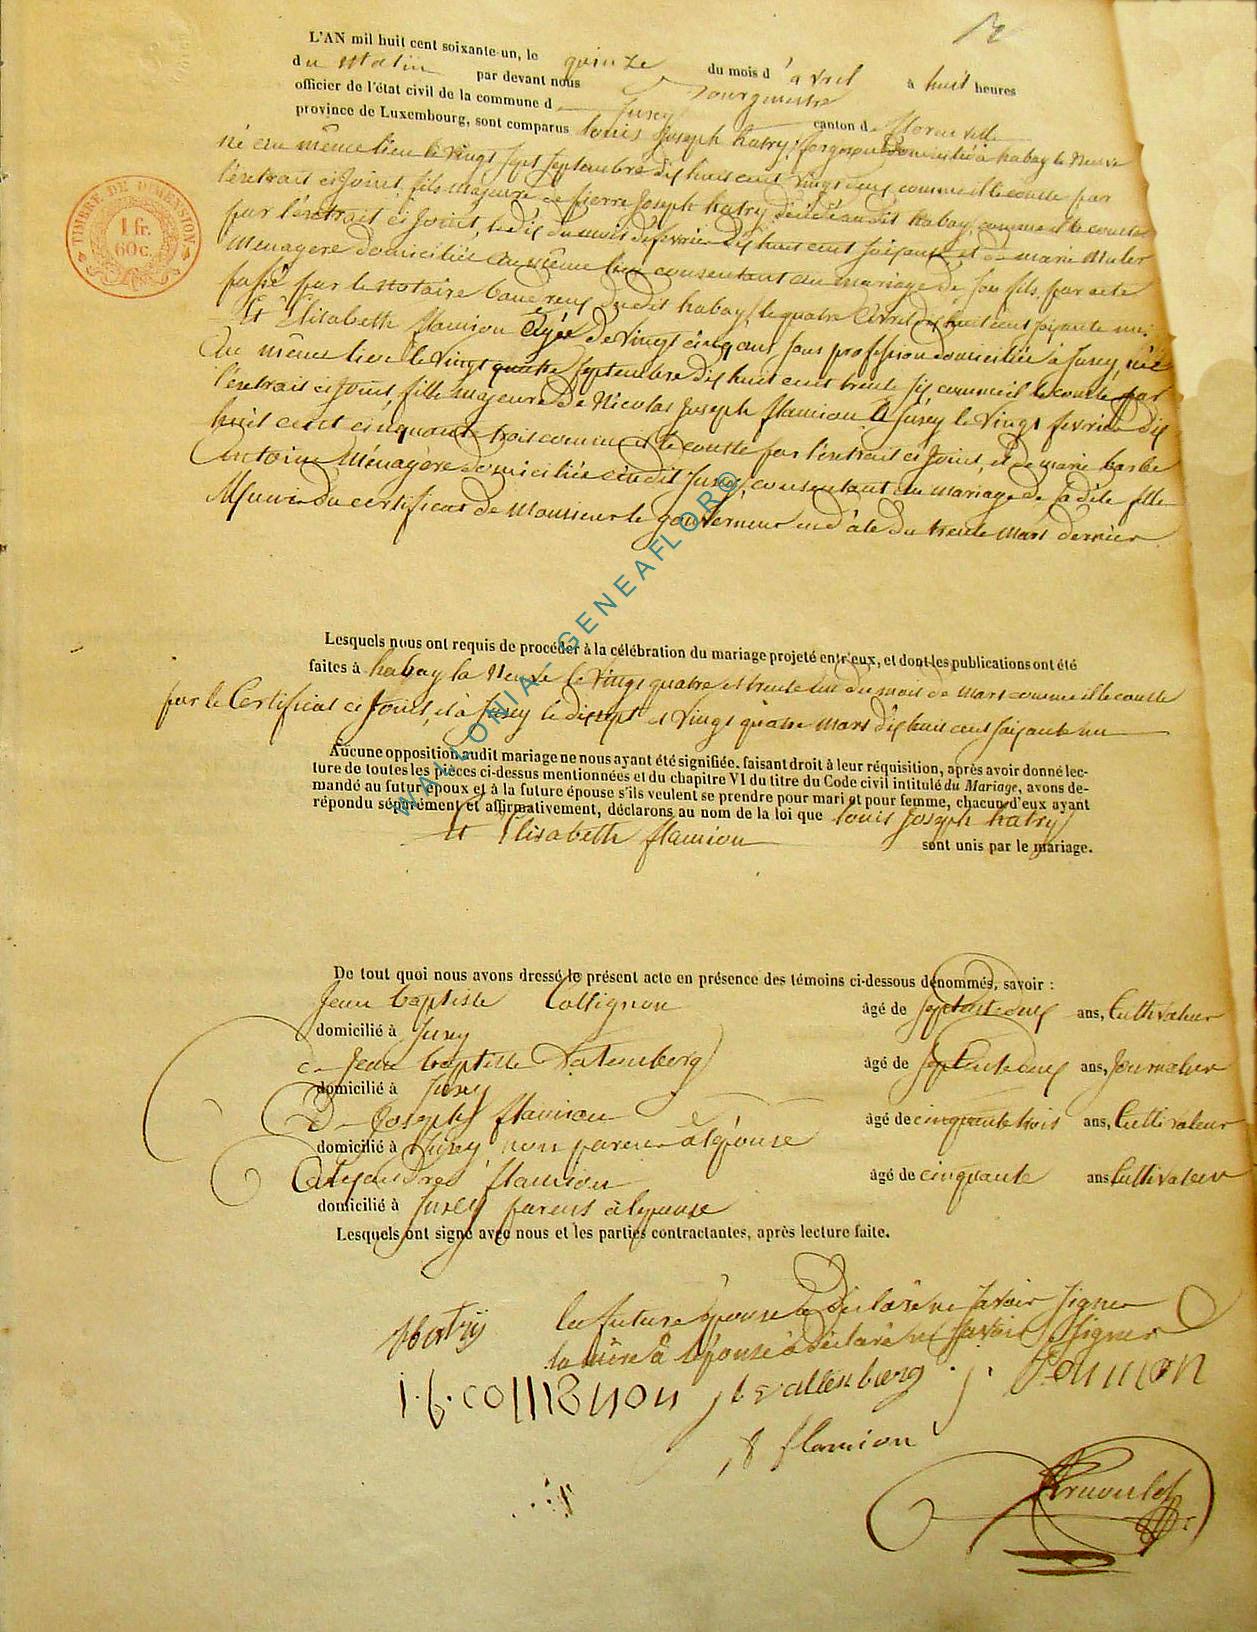 L'AN mil huit cent soixante-un, le quinze du mois d'avril à huit heures
du matin par devant nous Bourgmestre
officier de l'état civil de la commune de Jusey canton de florenville
province de Luxembourg, sont comparus louis Joseph hatry, domicilié à habay la Neuve
né au même lieu le vingt sept septembre dix huit cent vingt deux comme il le conste par
l'extrait ci Joint, fils majeure de pierre Joseph hatry décédé audit habay, comme il le conste
par l'extrait ci Joint, le dix du mois de fevrier dix huit cent soixante et de marie Muler
Menagère domiciliée au même lieu consentant au mariage de son fils, par acte
passé par le Notaire baudrux dudit habay, le quatre Avril dix huit cent soixante un.
Et Elisabeth flamion Agée de vingt cinq ans sans profession domiciliée à Jusey, née
Au même lieu le vingt quatre septembre dix huit cent trente six comme il le conste par
l'extrait ci Joint, fille majeure de Nicolas Joseph flamion à Jusey le vingt fevrier dix
huit cent cinquante trois comme il le conste par l'extrait ci Joint, et de marie barbe
Antoine Ménagère domiciliée audit Jusey, consentant au mariage de sa dite fille
Muni du certificat de Monsieur le gouverneur en date du trente mars dernier
Lesquels nous ont requis de procéder à la célébration du mariage projeté entr'eux, et dont les publications ont été
faites à habay la Neuve le vingt quatre et trente un du mois de mars comme il le conste
par le Certificat ci Joint, et à Jusey le dix sept et vingt quatre mars dix huit cent soixante un
Aucune opposition audit mariage ne nous ayant été signifiée, faisant droit à leur réquisition, après avoir donné lec-
ture de toutes les pièces ci-dessus mentionnées et du chapitre VI du titre du Code civil intitulé du Mariage, avons de-
mandé au futur époux et à la future épouse s'ils veulent se prendre pour mari et pour femme, chacun d'eux ayant
répondu séparément et affirmativement, déclarons au nom de la loi que louis Joseph hatry
Et Elisabeth flamion sont unis par le mariage.
De tout quoi nous avons dressé le présent acte en présence des témoins ci-dessous dénommés, savoir :
Jean baptiste Collignon âgé de septante deux ans, Cultivateur
domicilié à Jusey
de Jean baptiste Vatenberg âgé de septante deux ans, Journalier
domicilié à Jusey
De Joseph flamion âgé de cinquante trois ans, Cultivateur
domicilié à Jusey non parent à l'épouse
Alexandre flamion âgé de cinquante ans Cultivateur
domicilié à Jusey parens à l'épouse
Lesquels ont signé avec nous et les parties contractantes, après lecture faite.
la future épouse a déclaré ne savoir signer
Hatry
la mère à l'épouse a déclaré ne savoir signer
j. b. collignon j b vattenberg j. flamion
flamion
TIMBRE DE DIMENSION
1 fr.
60c.
WALLONIA-GENEAFLOR©